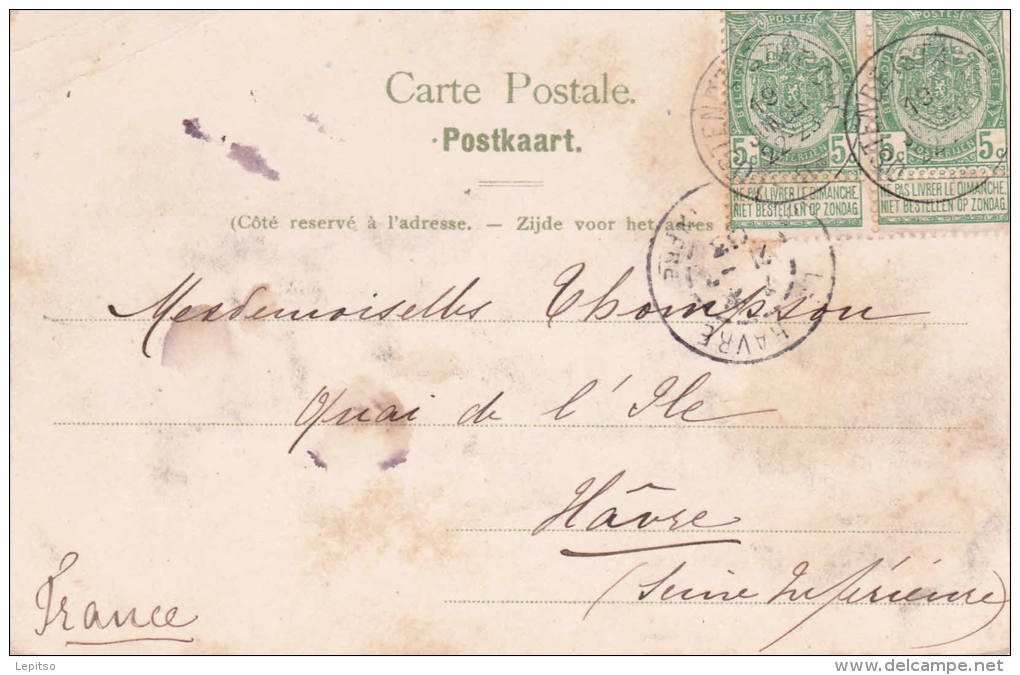 POSTES POSTES
Carte Postale.
Postkaart.
5c 5c 5c 5c
NE PAS LIVRER LE DIMANCHE NE PAS LIVRER LE DIMANCHE
NIET BESTELLEN OP ZONDAG NIET BESTELLEN OP ZONDAG
(Côté reservé à l'adresse. — Zijde voor het adres
HAVRE
Mesdemoiselles Thompson
Quai de l'Ile
Hâvre
(Seine Inférieure)
France
Lepitso
www.delcampe.net